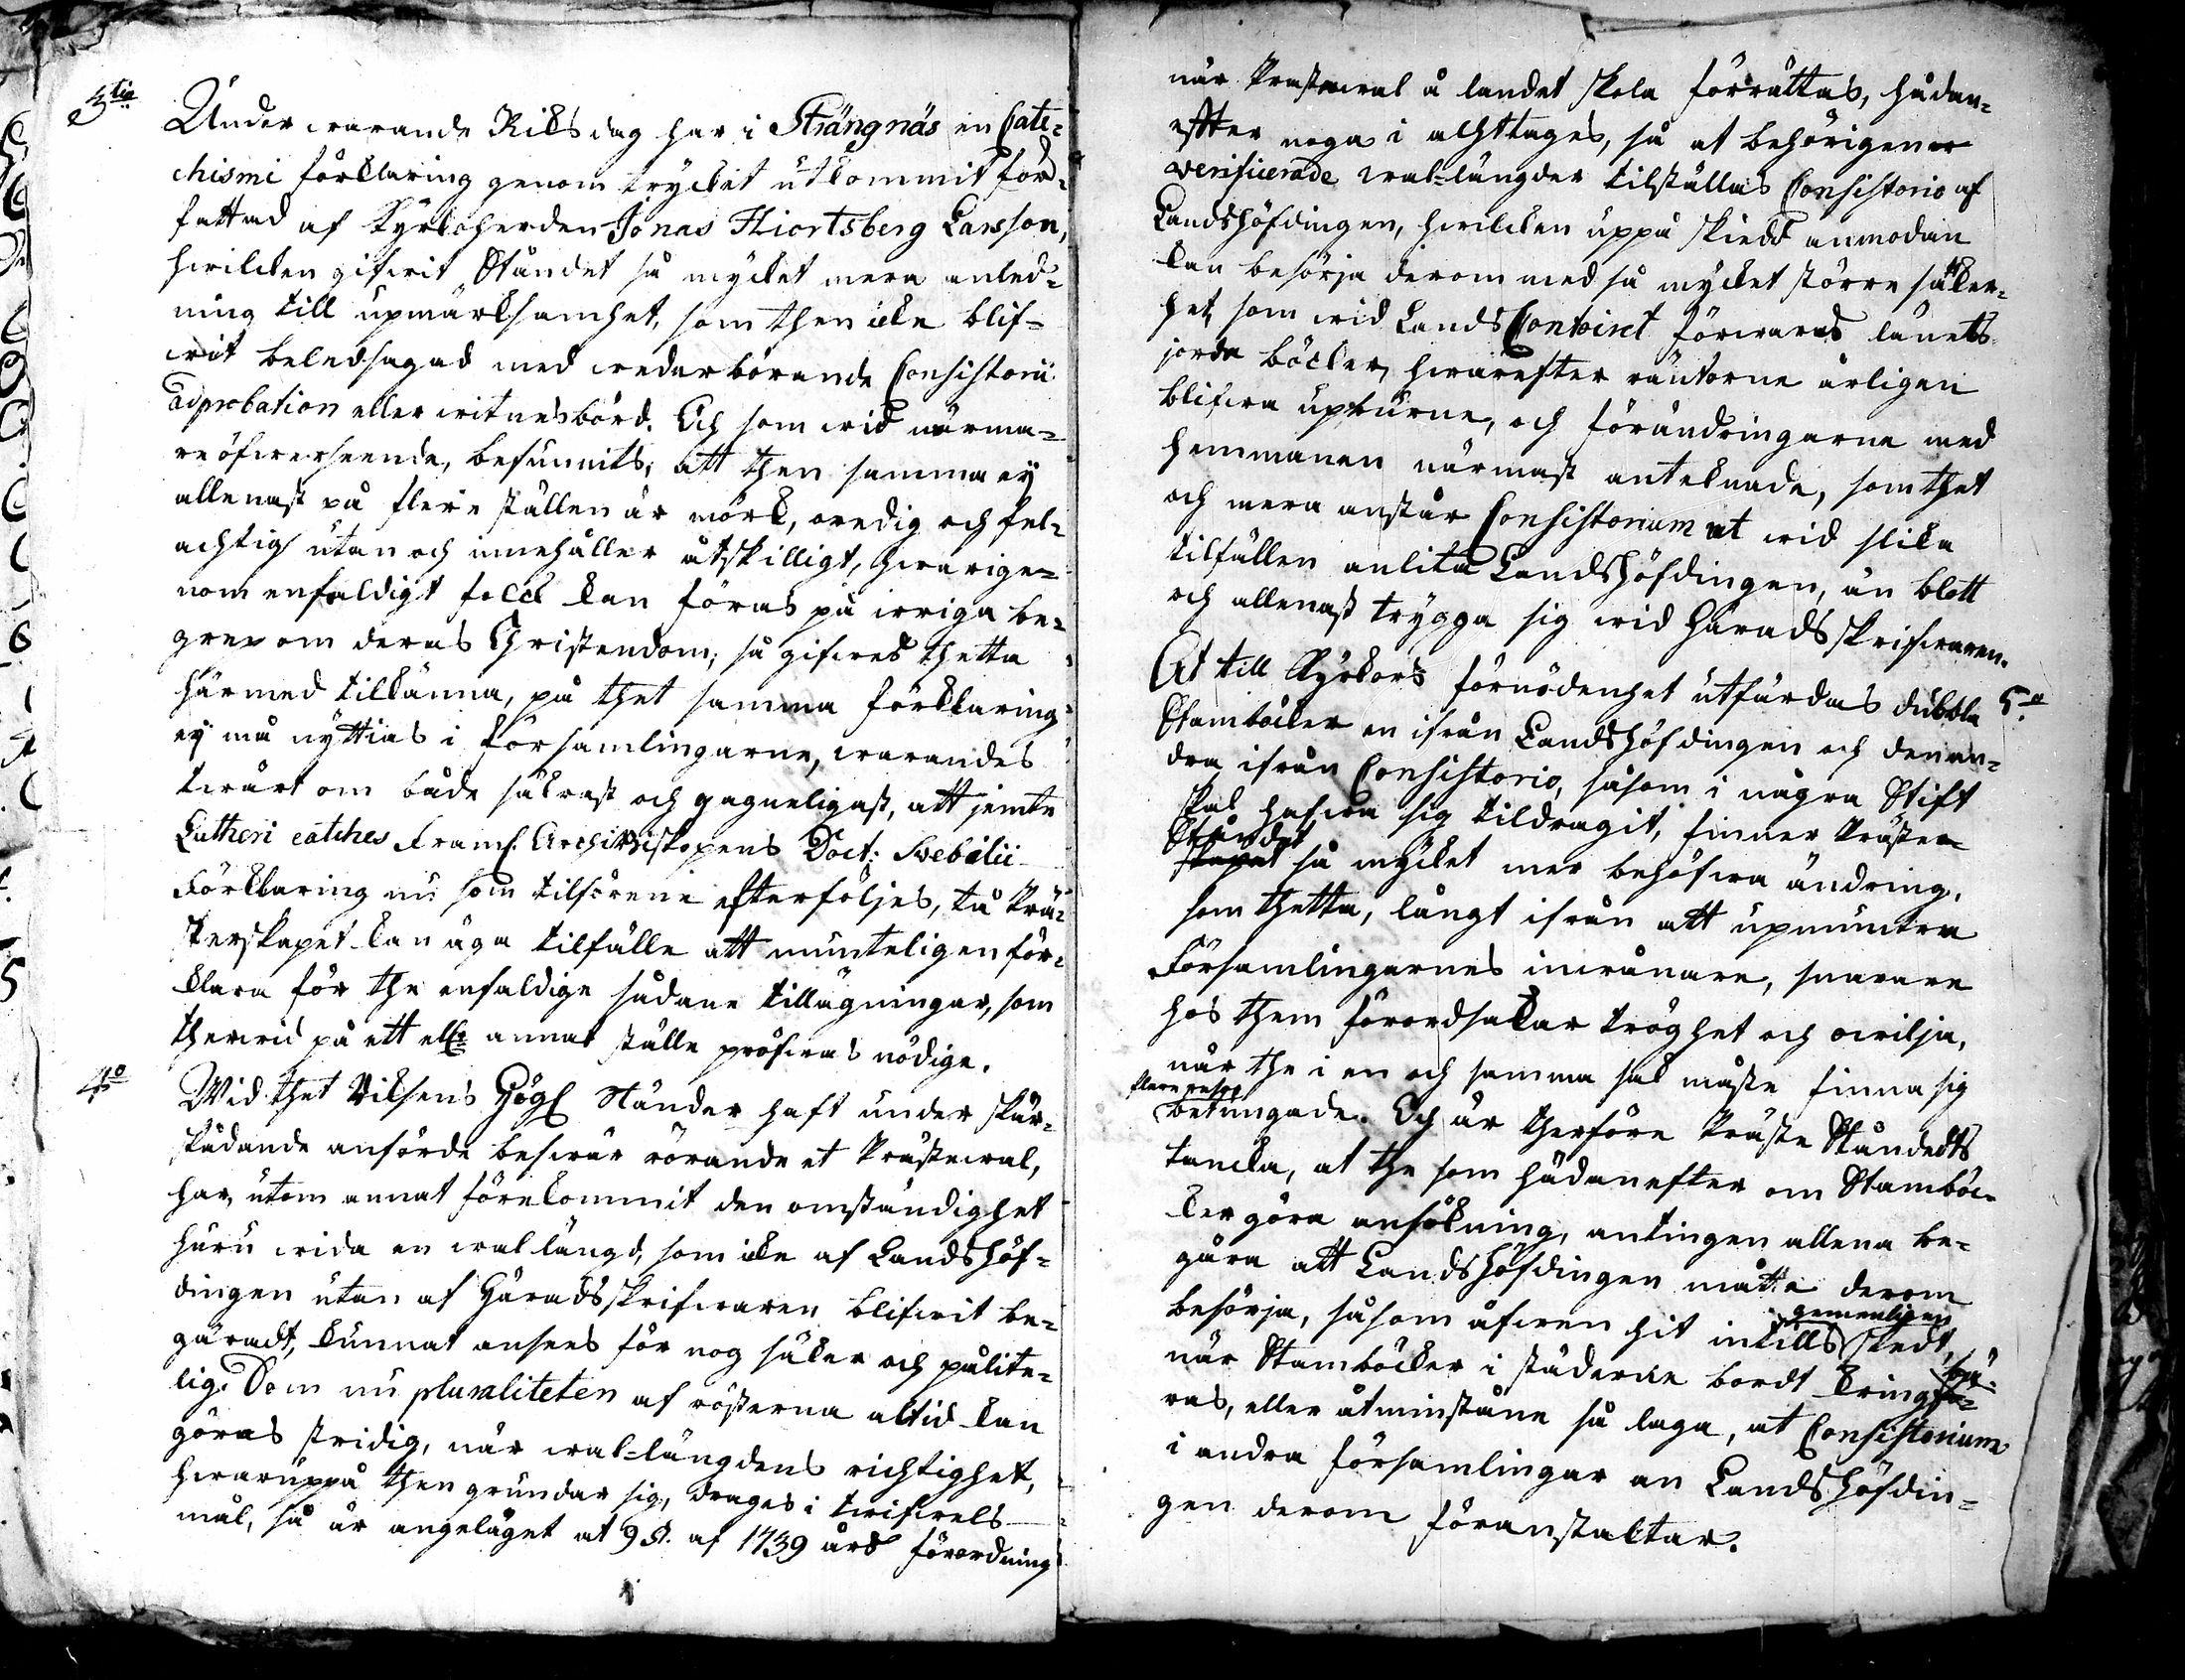 3tio
Under warande Riksdag har i Strängnäs en Cate=
chismi förklaring genom trycket utkommit för=
fattad af Kyrkoherden Jonas Hiortsberg Larsson,
hwilcken gifwit Ståndet så mycket mera anled=
ning till upmärksamhet, som then icke blif=
wit beledsagad med wederbörande Consistorii
adprobation eller witnesbörd. Och som wid närma=
re öfwerseende, befunnits, att then samma ej
allenast på flere ställen är mörk, oredig och fel=
achtig utan och innehåller åtskilligt, hwarige=
nom enfaldigt folck kan föras på irriga be=
grep om deras Christendom; så gifwes thetta
härmed tillkänna, på thet samma förklaring
ej må nyttias i församlingarne, warandes
twärt om både säkrast och gagneligast, att jemte
Lutheri catches framl. Archi Biskopens Doct: Swebilii
Förklaring nu som tilförene efterföljes, tå Prä=
sterskapet kan äga tilfälle att munteligen för=
klara för the enfaldige sådane tillägningar, som
therwid på ett ellr annat ställe pröfwas nödige.
4o
Wid thet Riksens Högl Ständer haft under skär=
skådande anförde beswär rörande et Prästewal,
har, utom annat förekommit den omständighet
huru wida en wallängd, som icke af Landshöf=
dingen utan af Häradsskrifwaren blifwit be=
gäradt, kunnat anses för nog säker och pålite=
lig. Som nu pluraliteten af rösterna altid kan
göras stridig, när wal-längdens richtighet,
hwaruppå then grundar sig, drages i twifwels
mål, så är angeläget at 9 §. af 1739 års förordning
när Prästewal å landet skola förrättas, hädan=
effter noga i achttages, så at behörigen
verificerade wal-längder tilställas Consistorio af
Landshöfdingen, hwilcken uppå skiedd anmodan
kan besörja derom med så mycket större säker=
het, som wid Lands Contoiret förwaras länets
jorde böcker, hwarefter räntorne årligen
blifwa upburne, och förändringarne med
hemmanen närmast antecknade, som thet
och mera anstår Consistorium at wid slika
tilfällen anlita Landshöfdingen, än blott
och allenast trygga sig wid Häradsskrifwaren.
At till Kyrkors förnödenhet utfärdas dubbla 5o
Stamböcker en ifrån Landshöfdingen och den an=
dra ifrån Consistorio, såsom i några Stift
skal hafwa sig tildragit, finner Präste
Ståndet
skapet så mycket mer behöfwa ändring,
som thetta, långt ifrån att upmuntra
Församlingarnes inwånare, snarare
hos them förordsakar tröghet och owilja,
när the i en och samma sak måste finna sig
flere resor
betungade. Och är therföre Präste Ståndets
tancka, at the som hädanefter om Stamböc=
ker göra ansökning, antingen allena be=
gära att Landshöfdingen måtte derom
besörja, såsom äfwen hit intills skedt,
gemenligen
när Stamböcker i städerne bordt kringfö=
bä=
ras, eller åtminstone så laga, at Consistorium
i andra församlingar an Landshöfdin=
gen derom föranstaltar.